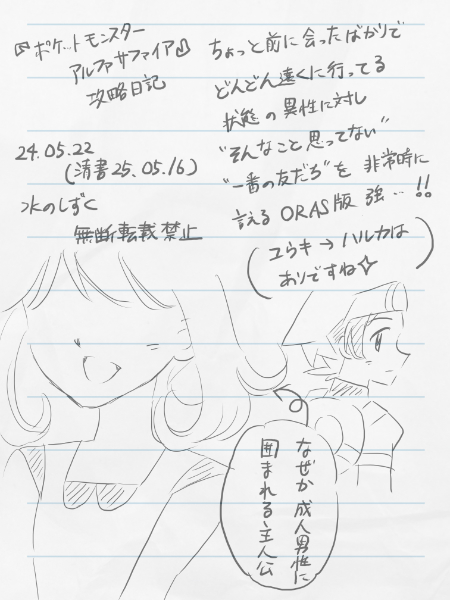 ポケットモンスター
アルファサファイア
攻略日記
24.05.22
(清書25.05.16)
水のしずく
無断転載禁止
ちょっと前に会ったばかりで
どんどん遠くに行ってる
状態の異性に対し
"そんなこと思ってない"
"一番の友だち"を 非常時に
言える ORAS版 強…!!
(ユウキ→ハルカは
ありですね✧)
なぜか成人男性に
囲まれる主人公